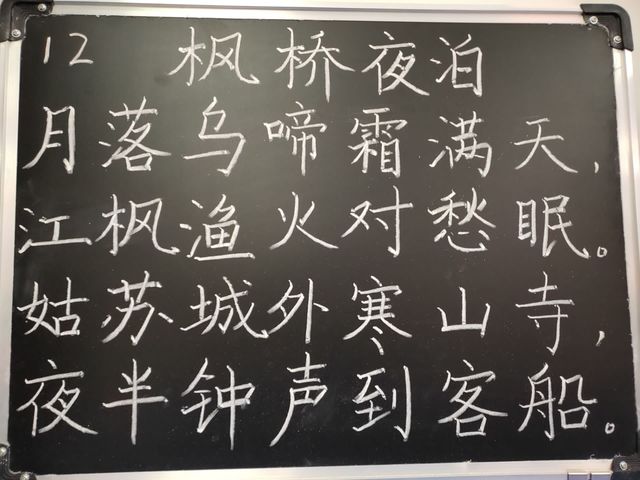 12 枫桥夜泊
月落乌啼霜满天，
江枫渔火对愁眠。
姑苏城外寒山寺，
夜半钟声到客船。